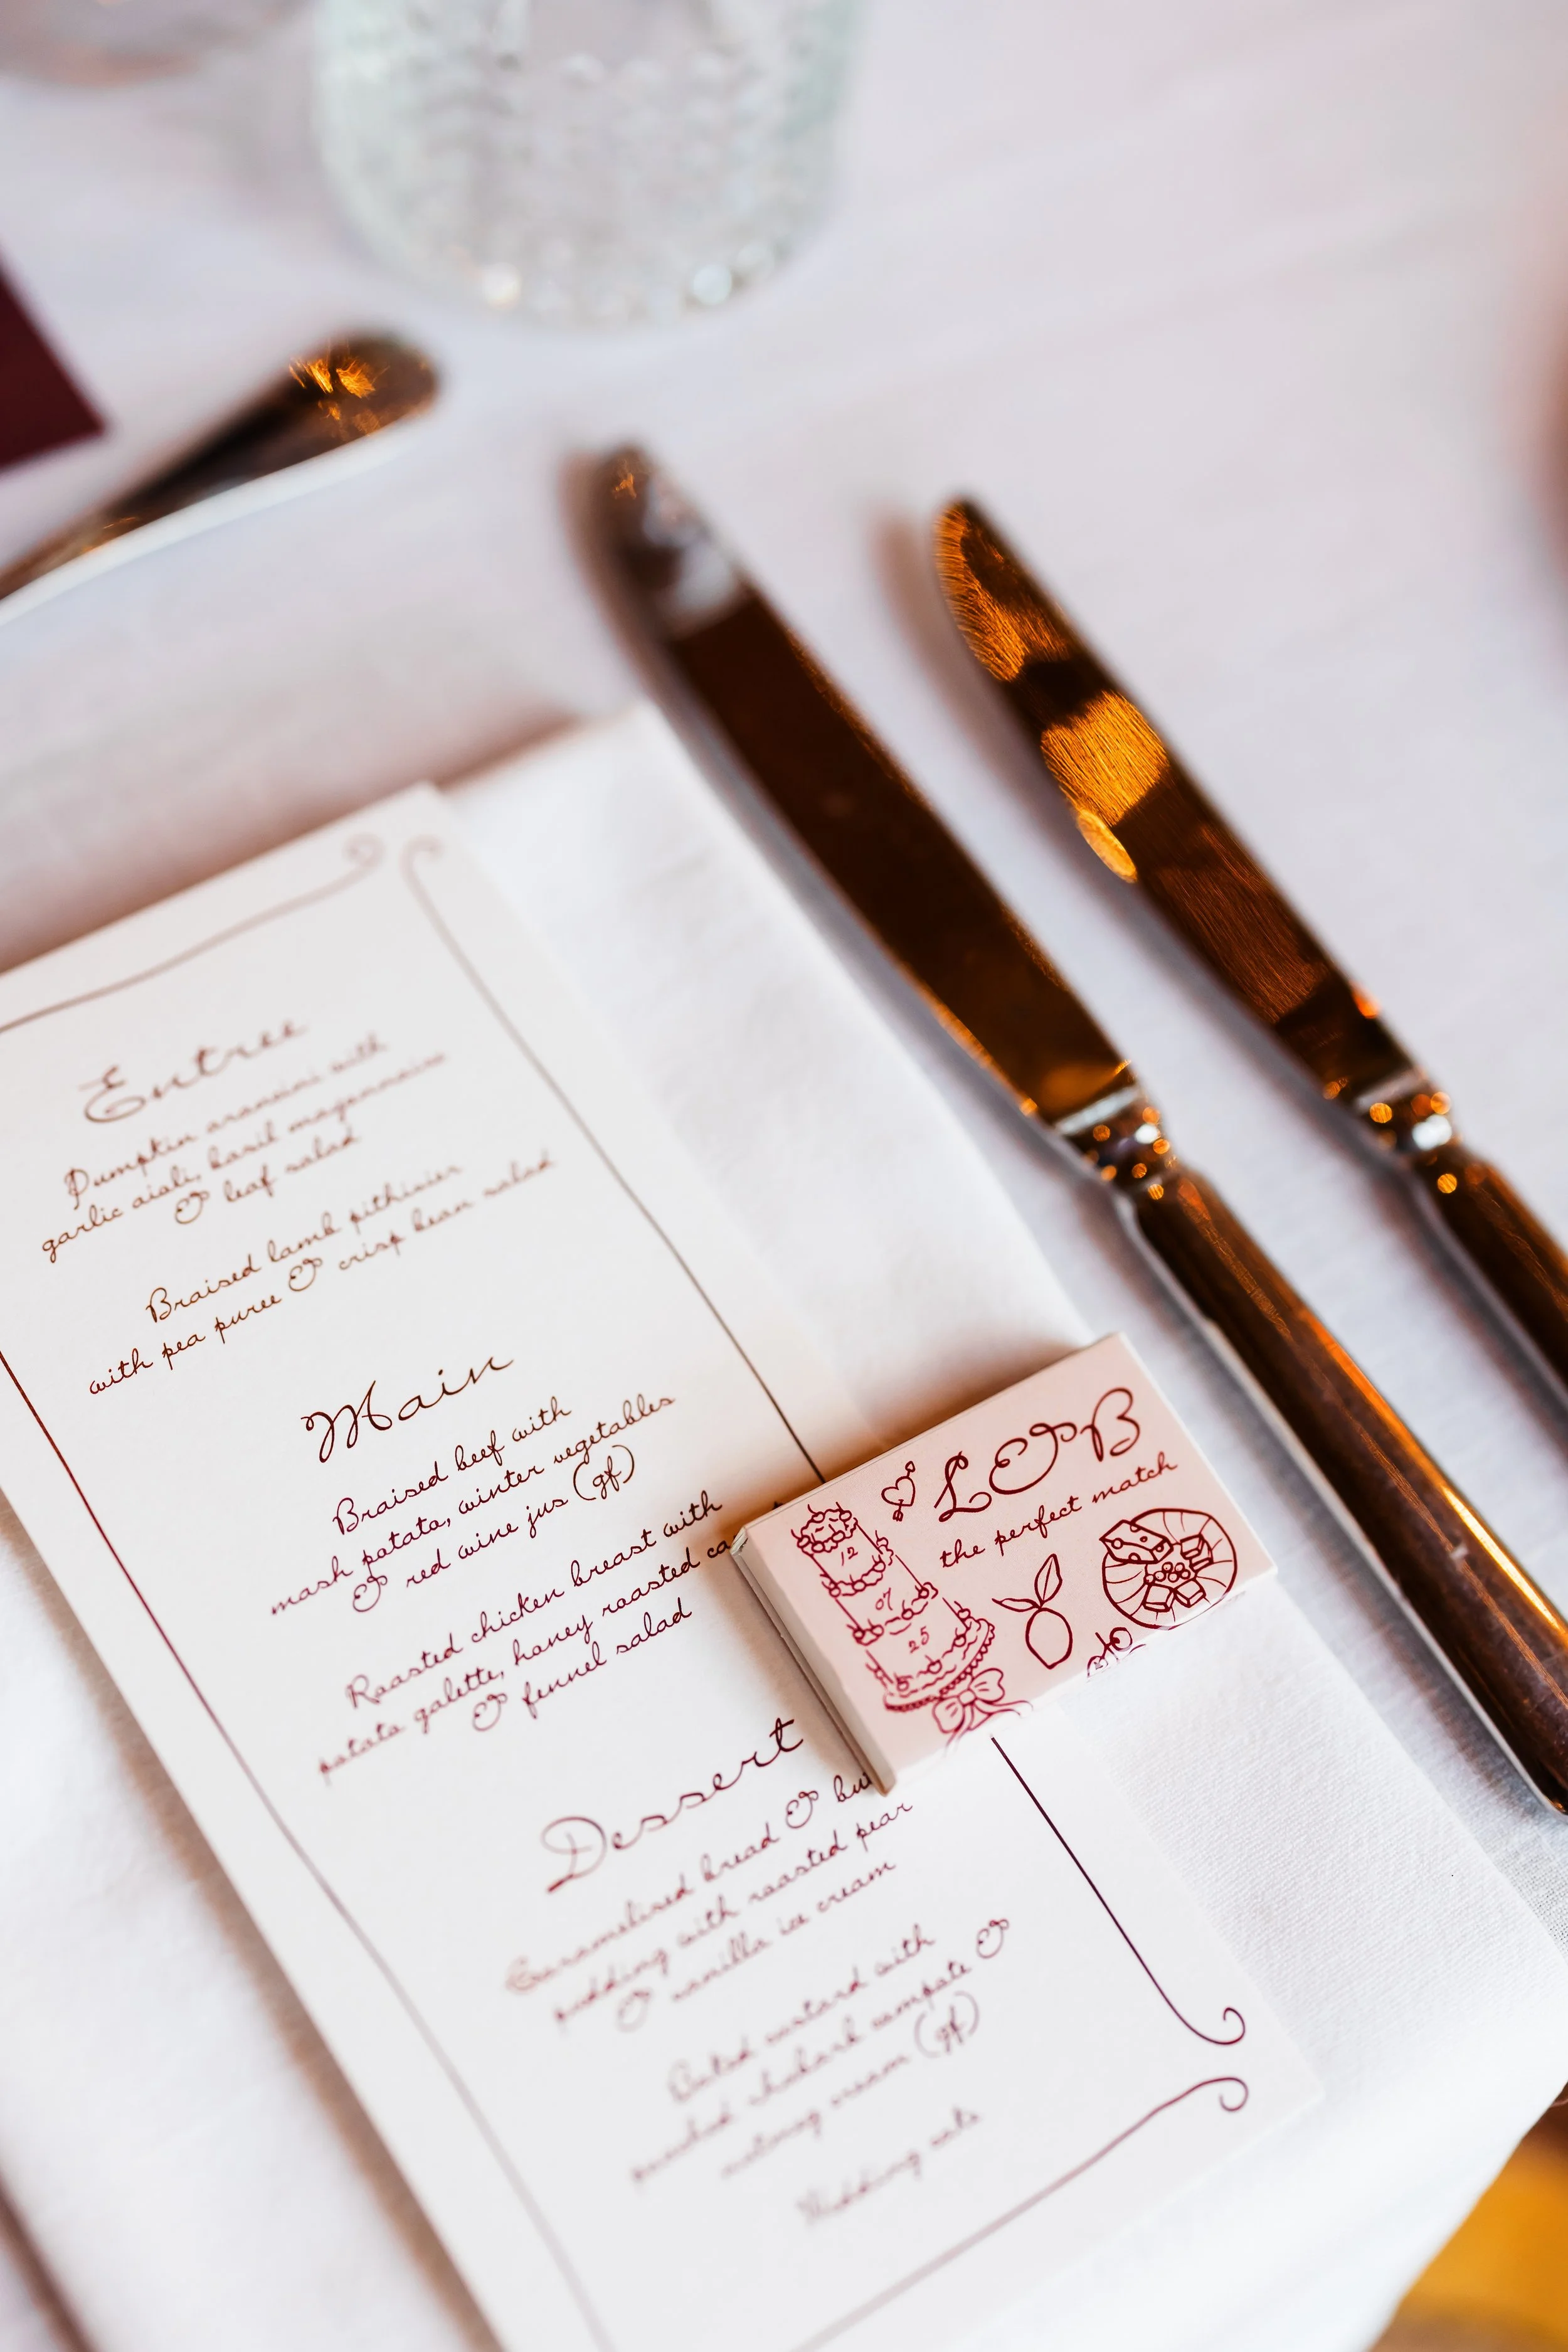 Entree
Pumpkin arancini with
garlic aioli, basil mayonnaise
& leaf salad
Braised lamb pithivier
with pea puree & crisp bean salad
Main
Braised beef with
mash potato, winter vegetables
& red wine jus (gf)
Roasted chicken breast with
potato galette, honey roasted
& fennel salad
Dessert
Caramelised bread &
pudding with roasted pear
& vanilla ice cream
Baked custard with
poached rhubarb compote &
nutmeg cream (gf)
Wedding cake
L&B
the perfect match
12
07
25